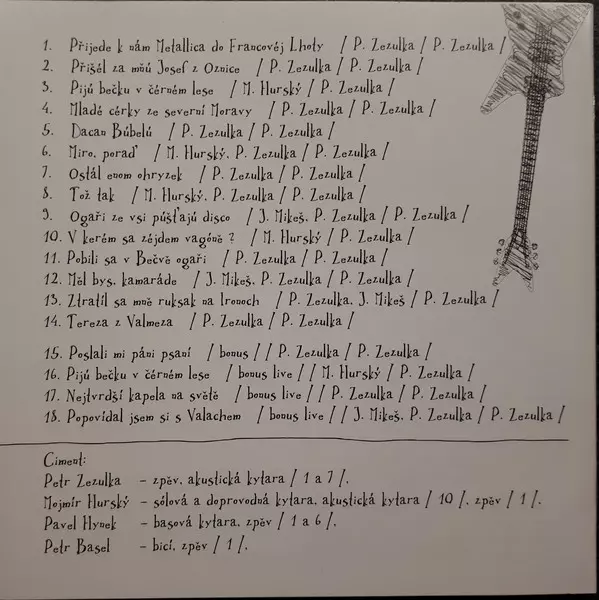 1. Přijede k nám Metallica do Francovéj Lhoty / P. Zezulka / P. Zezulka /
2. Přišél za mňú Josef z Oznice / P. Zezulka / P. Zezulka /
3. Pijú bečku v čérném lese / M. Hurský / P. Zezulka /
4. Mladé cérky ze severní Moravy / P. Zezulka / P. Zezulka /
5. Dacan Búbelů / P. Zezulka / P. Zezulka /
6. Miro, poraď / M. Hurský, P. Zezulka / P. Zezulka /
7. Ostál enom ohryzek / P. Zezulka / P. Zezulka /
8. Tož tak / M. Hurský, P. Zezulka / P. Zezulka /
9. Ogaři ze vsi púšťajú disco / J. Mikeš, P. Zezulka / P. Zezulka /
10. V kerém sa zéjdem vagóně ? / M. Hurský / P. Zezulka /
11. Pobili sa v Bečvě ogaři / P. Zezulka / P. Zezulka /
12. Měl bys, kamaráde / J. Mikeš, P. Zezulka / P. Zezulka /
13. Ztratíl sa mně ruksak na Ironoch / P. Zezulka, J. Mikeš / P. Zezulka /
14. Tereza z Valmeza / P. Zezulka / P. Zezulka /
15. Poslali mi páni psaní / bonus / / P. Zezulka / P. Zezulka /
16. Pijú bečku v čérném lese / bonus live / / M. Hurský / P. Zezulka /
17. Nejtvrdší kapela na světě / bonus live / / P. Zezulka / P. Zezulka /
18. Popovídal jsem si s Valachem / bonus live / / J. Mikeš, P. Zezulka / P. Zezulka /
Ciment:
Petr Zezulka – zpěv, akustická kytara / 1 a 7 /,
Mojmír Hurský – sólová a doprovodná kytara, akustická kytara / 10 /, zpěv / 1 /,
Pavel Hynek – basová kytara, zpěv / 1 a 6 /,
Petr Basel – bicí, zpěv / 1 /,